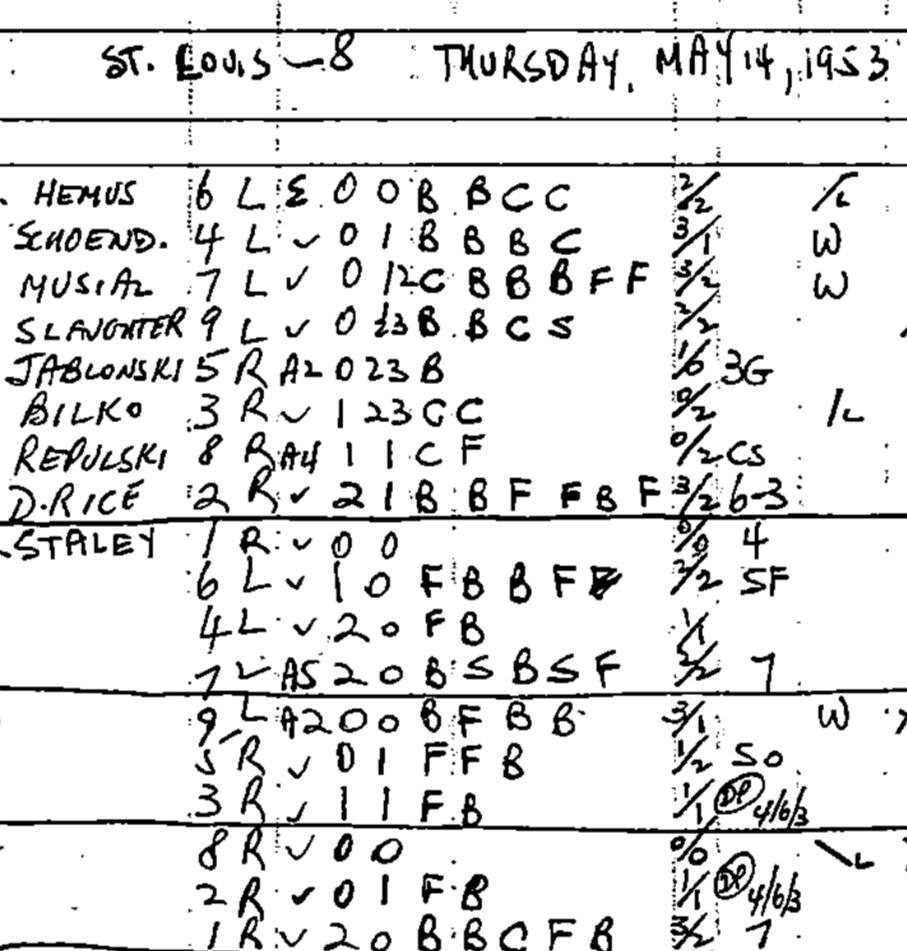 ST. LOUIS - 8 THURSDAY, MAY 14, 1953
HEMUS 6 L E 0 0 B B C C 2/2 /L
SCHOEND. 4 L ✓ 0 1 B B B C 3/1 W
MUSIAL 7 L ✓ 0 12 C B B B F F 3/2 W
SLAUGHTER 9 L ✓ 0 23 B B C S 2/2
JABLONSKI 5 R A2 0 23 B 1/0 3G
BILKO 3 R ✓ 1 23 C C 0/2 /L
REPULSKI 8 R A4 1 1 C F 0/2 CS
D. RICE 2 R ✓ 2 1 B B F F B F 3/2 6-3
STALEY 1 R ✓ 0 0 0/0 4
6 L ✓ 1 0 F B B F 2/2 SF
4 L ✓ 2 0 F B 1/1
7 L A5 2 0 B S B S F 2/2 7
9 L A2 0 0 B F B B 3/1 W
5 R ✓ 0 1 F F B 1/2 SO
3 R ✓ 1 1 F B 1/1 DP 4/6/3
8 R ✓ 0 0 0/0 \L
2 R ✓ 0 1 F B 1/1 DP 4/6/3
1 R ✓ 2 0 B B C F B 3/2 7